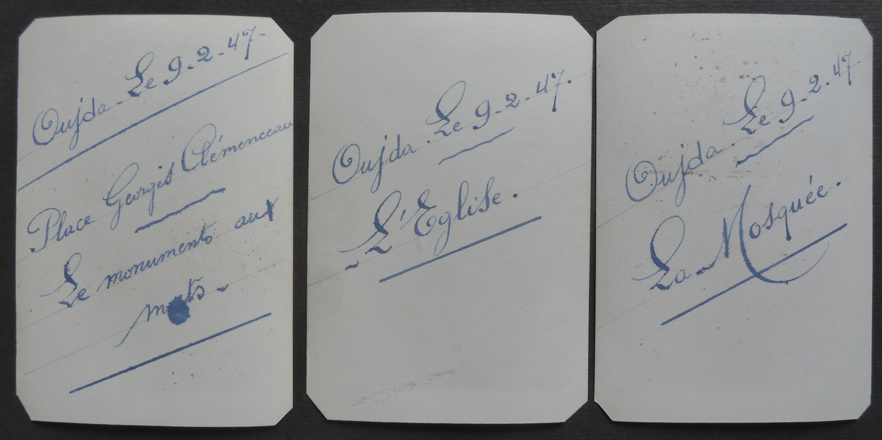 Oujda - Le 9-2-47-
Place Georges Clémenceau
Le monuments aux
morts -
Oujda. Le 9-2-47.
- L'Eglise.
Oujda. Le 9-2-47-
La Mosquée.